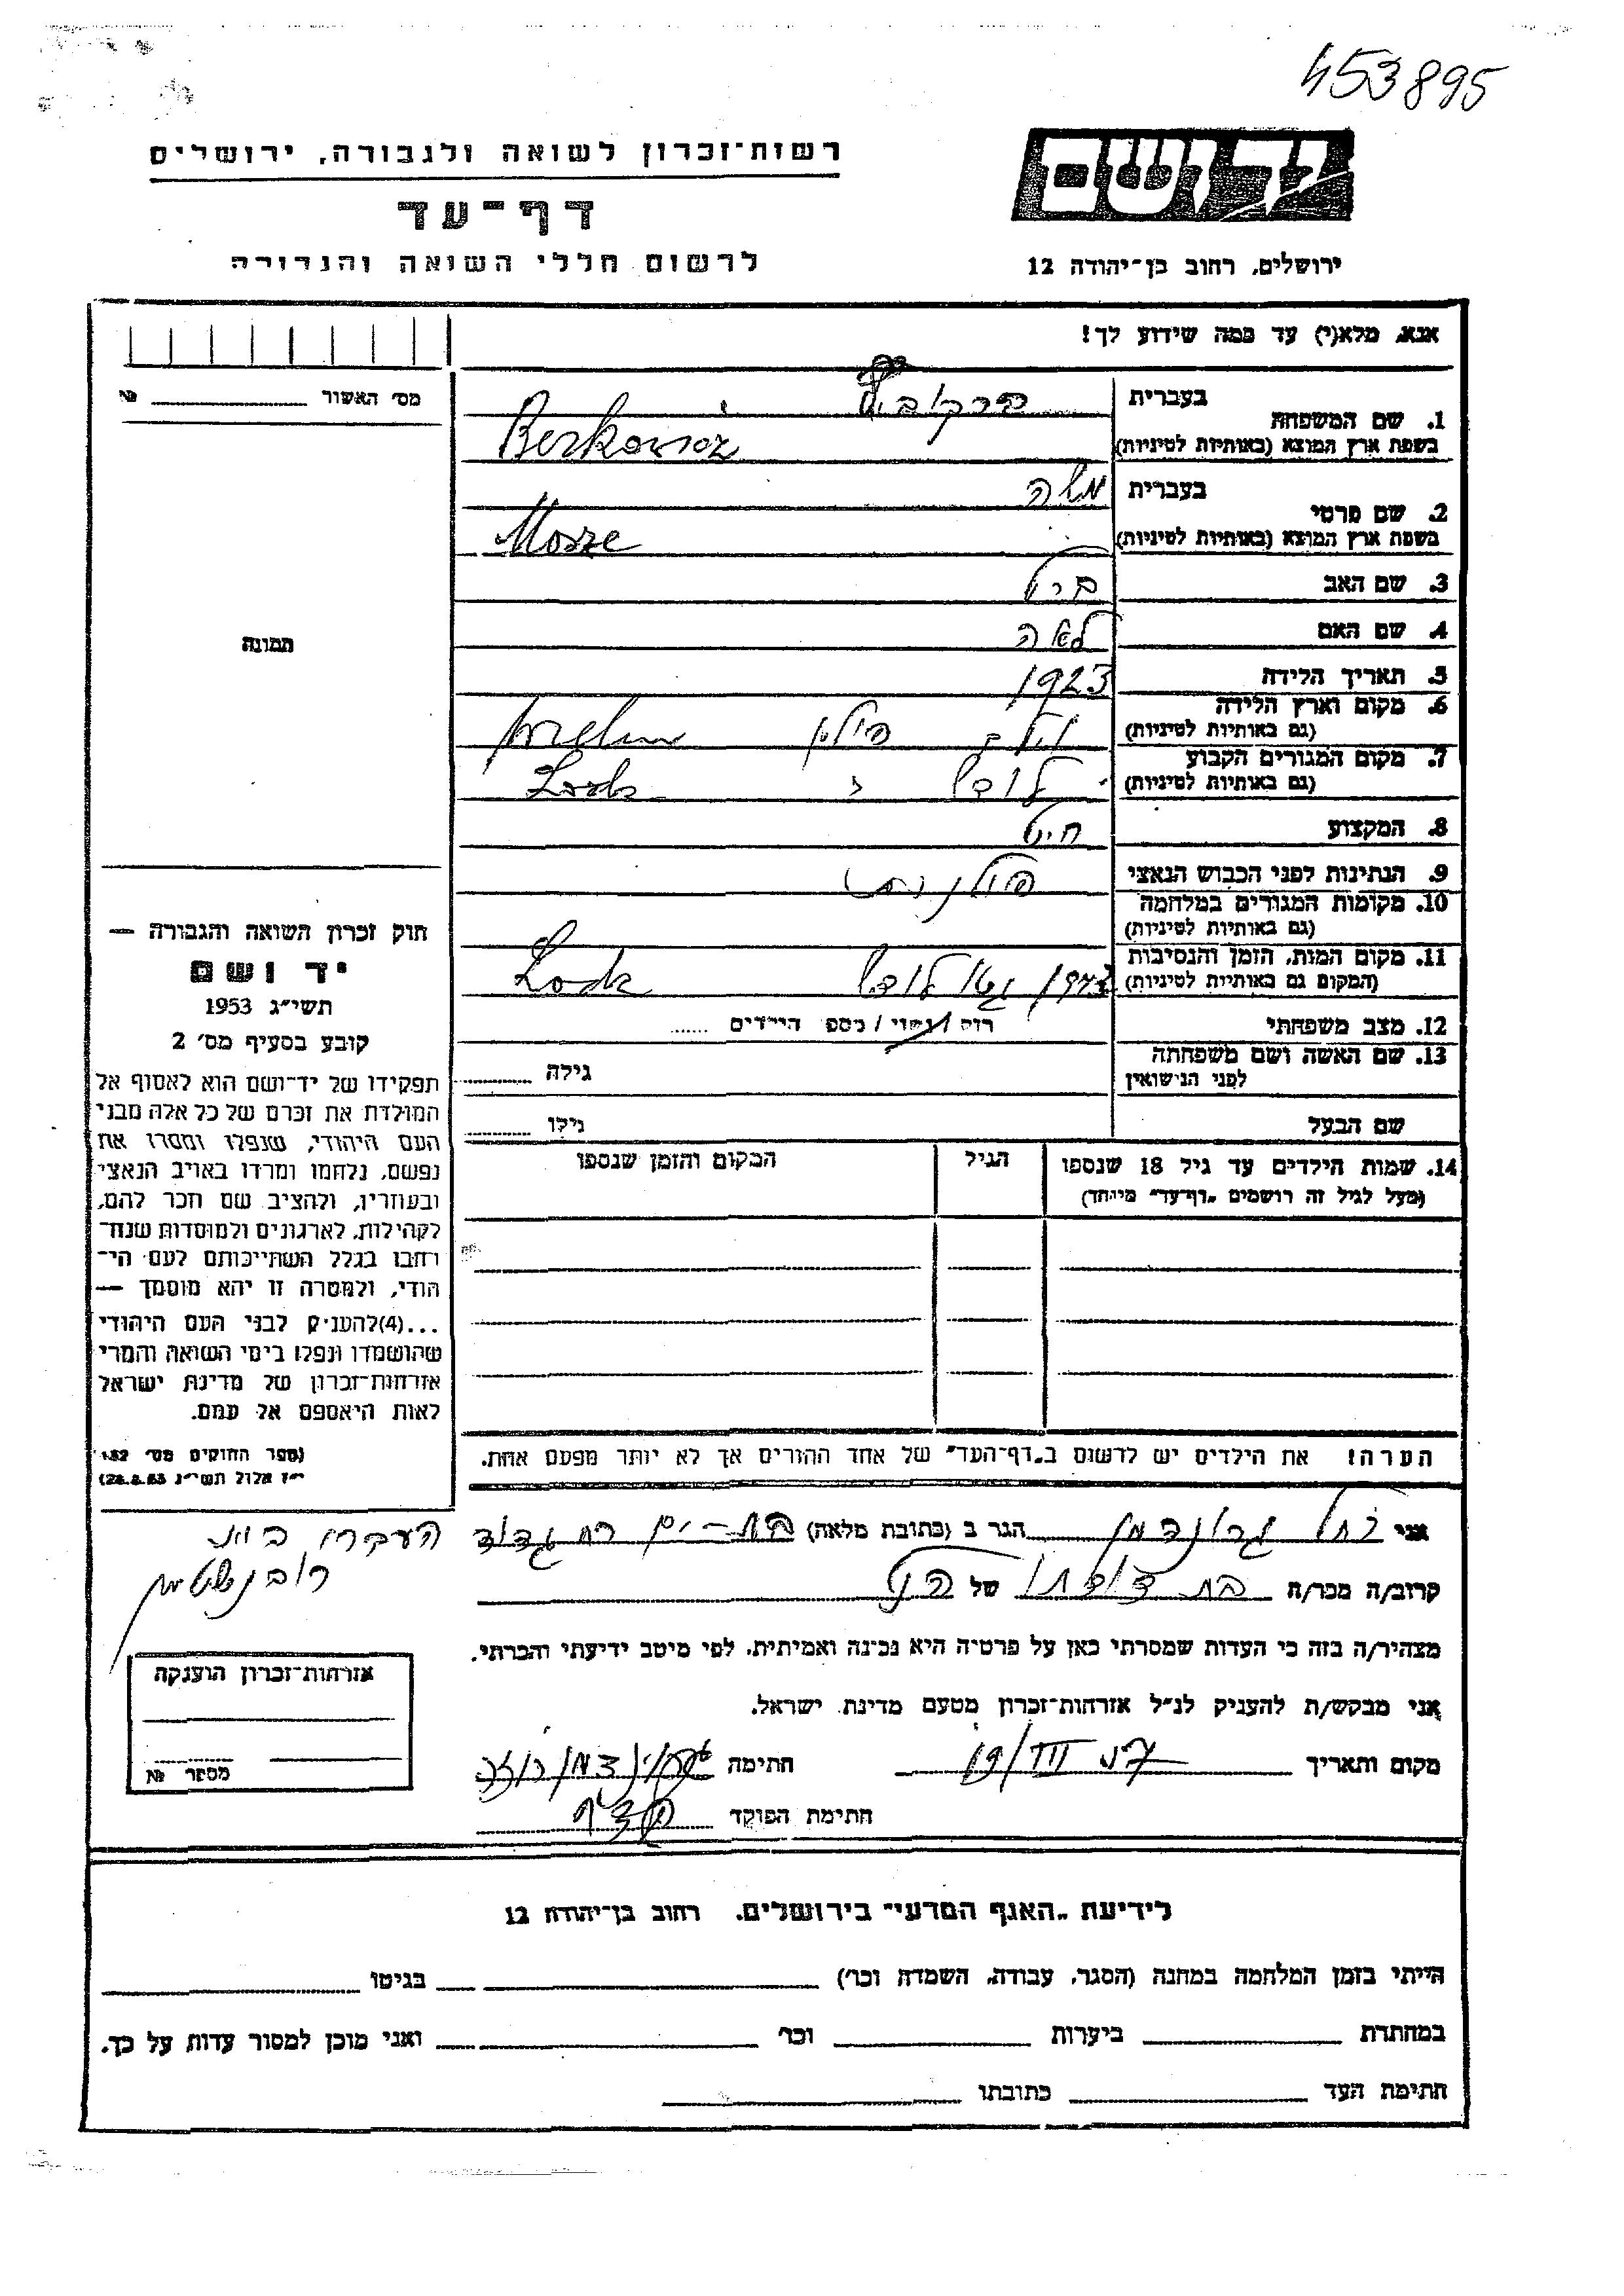 453895
יד ושם
רשות־זכרון לשואה ולגבורה, ירושלים
דף־עד
לרשום חללי השואה והגבורה
ירושלים, רחוב בן־יהודה 12
אנא, מלא(י) עד כמה שידוע לך!
מס׳ האשור № 
1. שם המשפחה בעברית
Berkowicz בשפת ארץ המוצא (באותיות לטיניות)
2. שם פרטי בעברית משה
בשפת ארץ המוצא (באותיות לטיניות) Mosze
3. שם האב
4. שם האם לאה
5. תאריך הלידה 1923
6. מקום וארץ הלידה פולין
(גם באותיות לטיניות)
7. מקום המגורים הקבוע לודז׳
(גם באותיות לטיניות) Lodz
8. המקצוע חייט
9. הנתינות לפני הכבוש הנאצי פולנית
10. מקומות המגורים במלחמה
(גם באותיות לטיניות)
11. מקום המות, הזמן והנסיבות
(המקום גם באותיות לטיניות) גטו לודז׳ Lodz
12. מצב משפחתי רווק / נשוי / מספר הילדים
13. שם האשה ושם משפחתה
לפני הנישואין גילה
שם הבעל גילו
14. שמות הילדים עד גיל 18 שנספו הגיל המקום והזמן שנספו
(מעל לגיל זה רושמים „דף־עד״ מיוחד)
הערה! את הילדים יש לרשום ב„דף־העד״ של אחד ההורים אך לא יותר מפעם אחת.
תמונה
חוק זכרון השואה והגבורה —
יד ושם
תשי״ג 1953
קובע בסעיף מס׳ 2
תפקידו של יד־ושם הוא לאסוף אל
המולדת את זכרם של כל אלה מבני
העם היהודי, שנפלו ומסרו את
נפשם, נלחמו ומרדו באויב הנאצי
ובעוזריו, ולהציב שם וזכר להם,
לקהילות, לארגונים ולמוסדות שנח־
רבו בגלל השתייכותם לעם הי־
הודי, ולמטרה זו יהא מוסמך —
...(4)להעניק לבני העם היהודי
שהושמדו ונפלו בימי השואה והמרי
אזרחות־זכרון של מדינת ישראל
לאות היאספם אל עמם.
(ספר החוקים מס׳ 132
י״ז אלול תשי״ג 28.8.53)
אני רחל הגר ב (כתובת מלאה) בת־ים רח
קרוב/ה מכר/ה בת דודתו של הנ״ל
מצהיר/ה בזה כי העדות שמסרתי כאן על פרטיה היא נכונה ואמיתית, לפי מיטב ידיעתי והכרתי.
אני מבקש/ת להעניק לנ״ל אזרחות־זכרון מטעם מדינת ישראל.
מקום ותאריך חתימה
חתימת הפוקד
אזרחות־זכרון הוענקה
מספר №
לידיעת „האגף המדעי״ בירושלים, רחוב בן־יהודה 12
הייתי בזמן המלחמה במחנה (הסגר, עבודה, השמדה וכו׳) בגיטו
במחתרת ביערות וכו׳ ואני מוכן למסור עדות על כך.
חתימת העד כתובתו